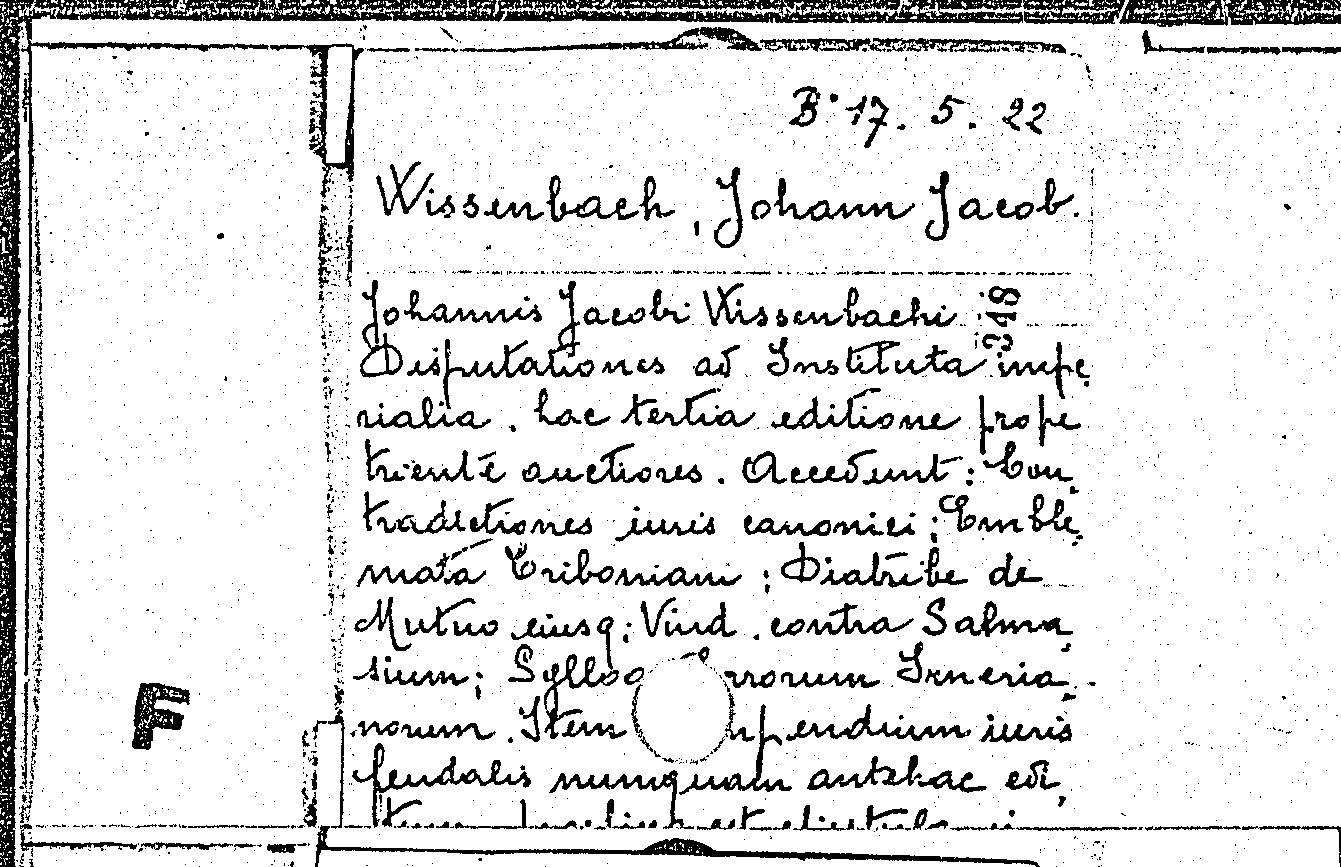 B. 17. 5. 22
Wissenbach, Johann Jacob.
348
Johannis Jacobi Wissenbachi
Disputationes ad Instituta impe,
rialia, hac tertia editione prope
trientē auctiores. Accedunt: Con,
tradictiones iuris canonici; Emble,
mata Triboniani; Diatribe de
Mutuo eiusq; Vind. contra Salma,
sium; Syllog rrorum Irneria,
norum. Item mpendium iuris
feudalis numquam antehac edi,
F